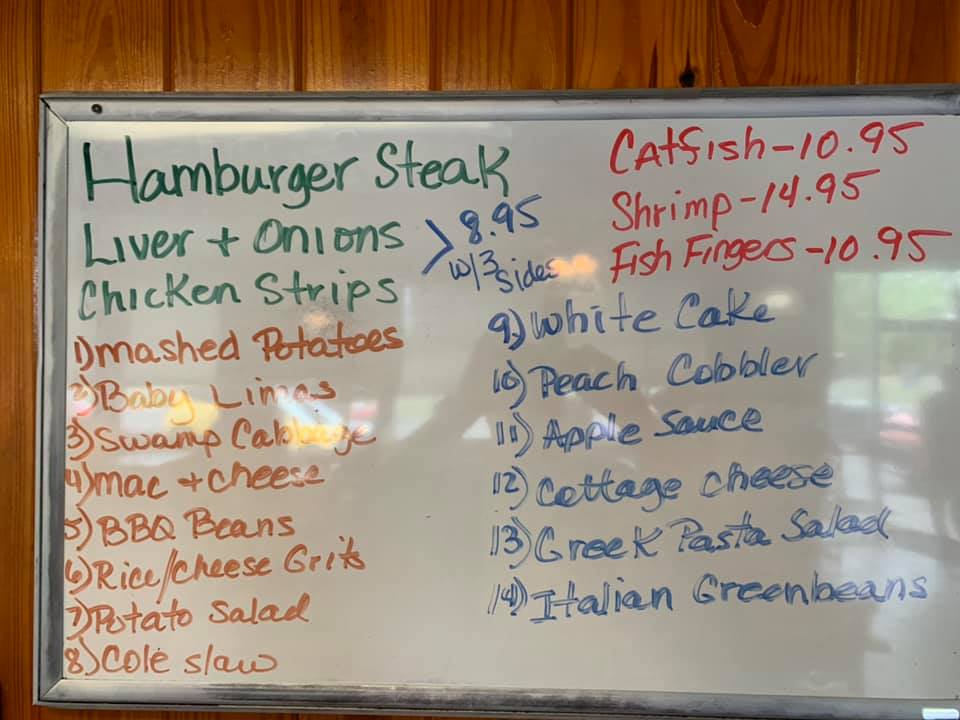 Hamburger Steak
Liver + Onions
Chicken Strips
> 8.95
w/3 sides
Catfish - 10.95
Shrimp - 14.95
Fish Fingers - 10.95
1) Mashed Potatoes
2) Baby Limas
3) Swamp Cabbage
4) Mac + cheese
5) BBQ Beans
6) Rice/Cheese Grits
7) Potato Salad
8) Cole slaw
9) White Cake
10) Peach Cobbler
11) Apple Sauce
12) Cottage cheese
13) Greek Pasta Salad
14) Italian Greenbeans